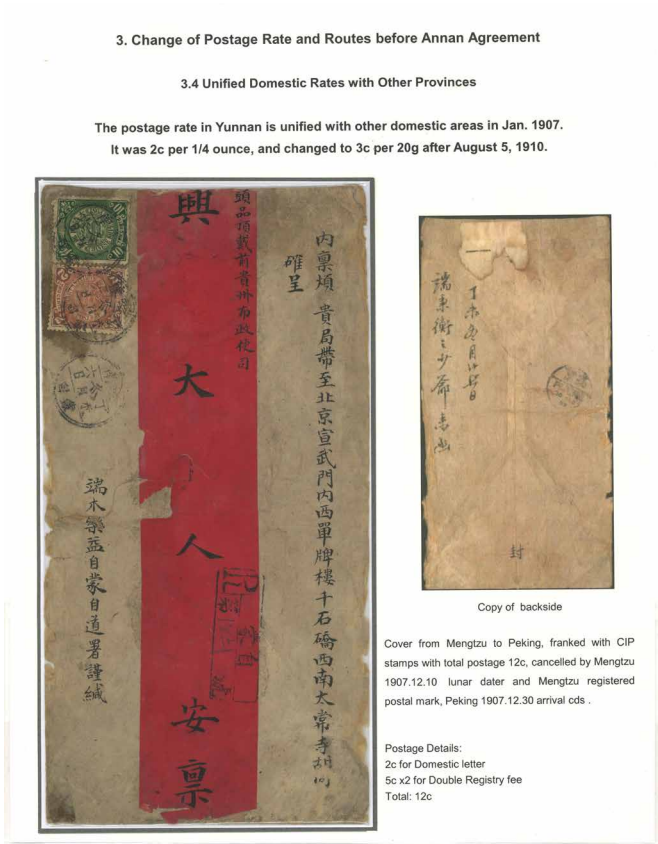 3. Change of Postage Rate and Routes before Annan Agreement
3.4 Unified Domestic Rates with Other Provinces
The postage rate in Yunnan is unified with other domestic areas in Jan. 1907.
It was 2c per 1/4 ounce, and changed to 3c per 20g after August 5, 1910.
內稟煩 貴局帶至北京宣武門內西單牌樓千石橋西南太常寺胡同
確呈
頭品頂戴前貴州布政使司
興大人安稟
端木 自蒙自道署謹緘
R
蒙自
丁未 月廿 日
端東街 少
封
Copy of backside
Cover from Mengtzu to Peking, franked with CIP
stamps with total postage 12c, cancelled by Mengtzu
1907.12.10 lunar dater and Mengtzu registered
postal mark, Peking 1907.12.30 arrival cds .
Postage Details:
2c for Domestic letter
5c x2 for Double Registry fee
Total: 12c